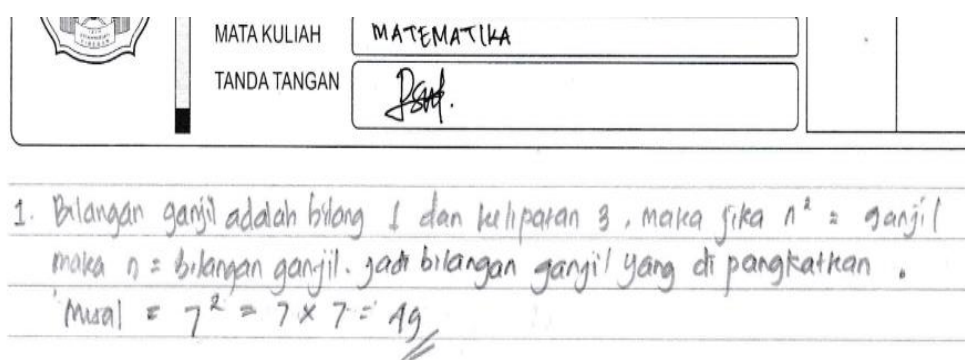 MATA KULIAH MATEMATIKA
TANDA TANGAN
1. Bilangan ganjil adalah bilang 1 dan kelipatan 3, maka jika n² = ganjil
maka n = bilangan ganjil. jadi bilangan ganjil yang di pangkatkan.
Misal = 7² = 7 x 7 = 49